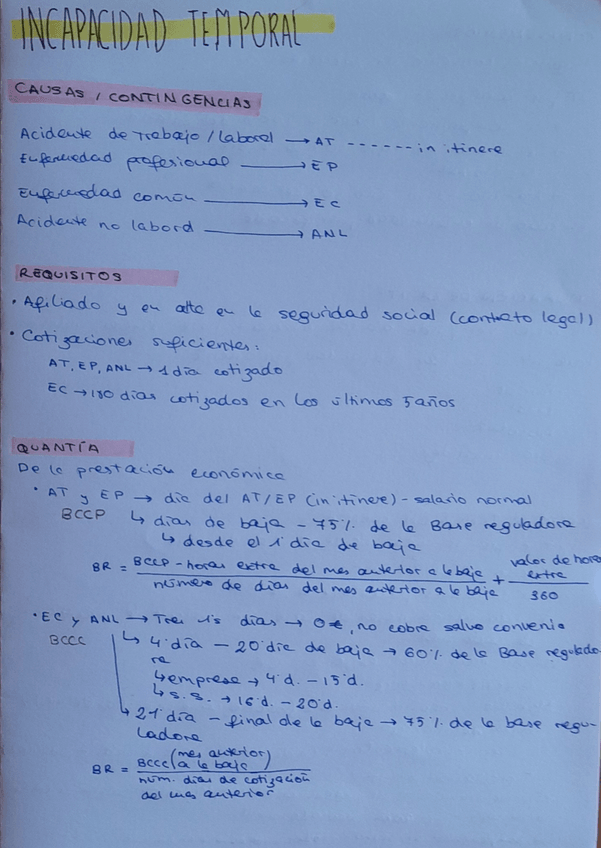 INCAPACIDAD TEMPORAL
CAUSAS / CONTINGENCIAS
Acidente de Trabajo / laboral → AT ------ in itinere
Enfermedad profesional → EP
Enfermedad común → EC
Acidente no laboral → ANL
REQUISITOS
• Afiliado y en alta en la seguridad social (contrato legal)
• Cotizaciones suficientes:
AT, EP, ANL → 1 día cotizado
EC → 180 días cotizados en los últimos 5 años
QUANTÍA
De la prestación económica
• AT y EP → día del AT/EP (in itinere) - salario normal
BCCP ↳ días de baja - 75% de la Base reguladora
↳ desde el 1º día de baja
BR = BCCP - horas extra del mes anterior a la baja / número de días del mes anterior a la baja + valor de horas extra / 360
• EC y ANL → Tres 1ºs días → 0€, no cobra salvo convenio
BCCC ↳ 4º día - 20º día de baja → 60% de la Base regulado
ra
↳ empresa → 4º d. - 15º d.
↳ s.s. → 16º d. - 20º d.
↳ 21º día - final de la baja → 75% de la base regu-
ladora
BR = BCCC (mes anterior a la baja) / núm. días de cotización del mes anterior